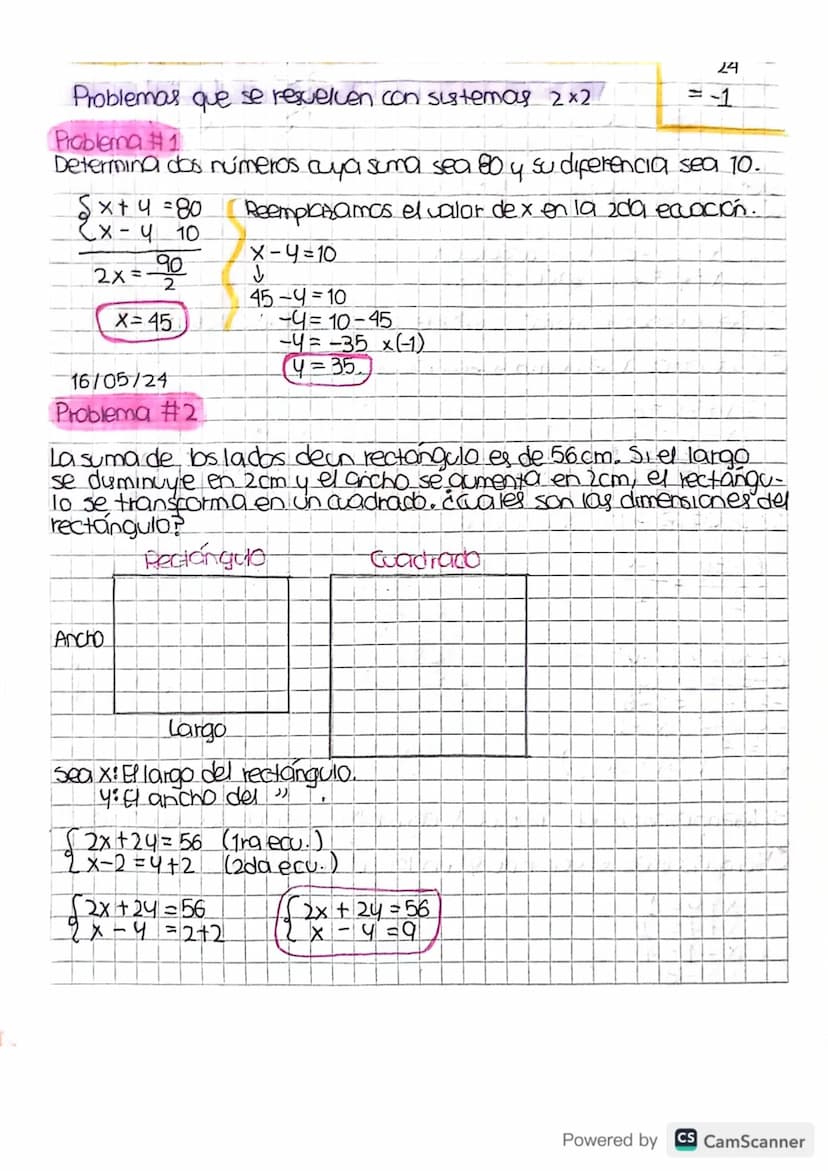 24
= -1
Problemas que se resuelven con sistemas 2x2
Problema #1
Determina dos números cuya suma sea 80 y su diferencia sea 10.
x + y = 80
x - y 10
2x = 90
2
x = 45
Reemplazamos el valor de x en la 2da ecuación.
x - y = 10
↓
45 - y = 10
-y = 10 - 45
-y = -35 x(-1)
y = 35.
16/05/24
Problema #2
La suma de los lados de un rectángulo es de 56 cm. Si el largo
se disminuye en 2cm y el ancho se aumenta en 2cm, el rectángu-
lo se transforma en un cuadrado. ¿Cuales son las dimensiones del
rectángulo?
Rectángulo
Cuadrado
Ancho
Largo
Sea x: El largo del rectángulo.
y: El ancho del " .
2x + 2y = 56 (1ra ecu.)
x - 2 = y + 2 (2da ecu.)
2x + 2y = 56
x - y = 2+2
2x + 2y = 56
x - y = 9
Powered by CS CamScanner